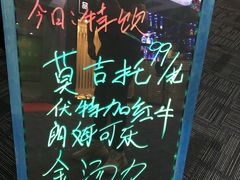 今日特饮
莫吉托99/元
伏特加红牛
朗姆可乐
金汤力